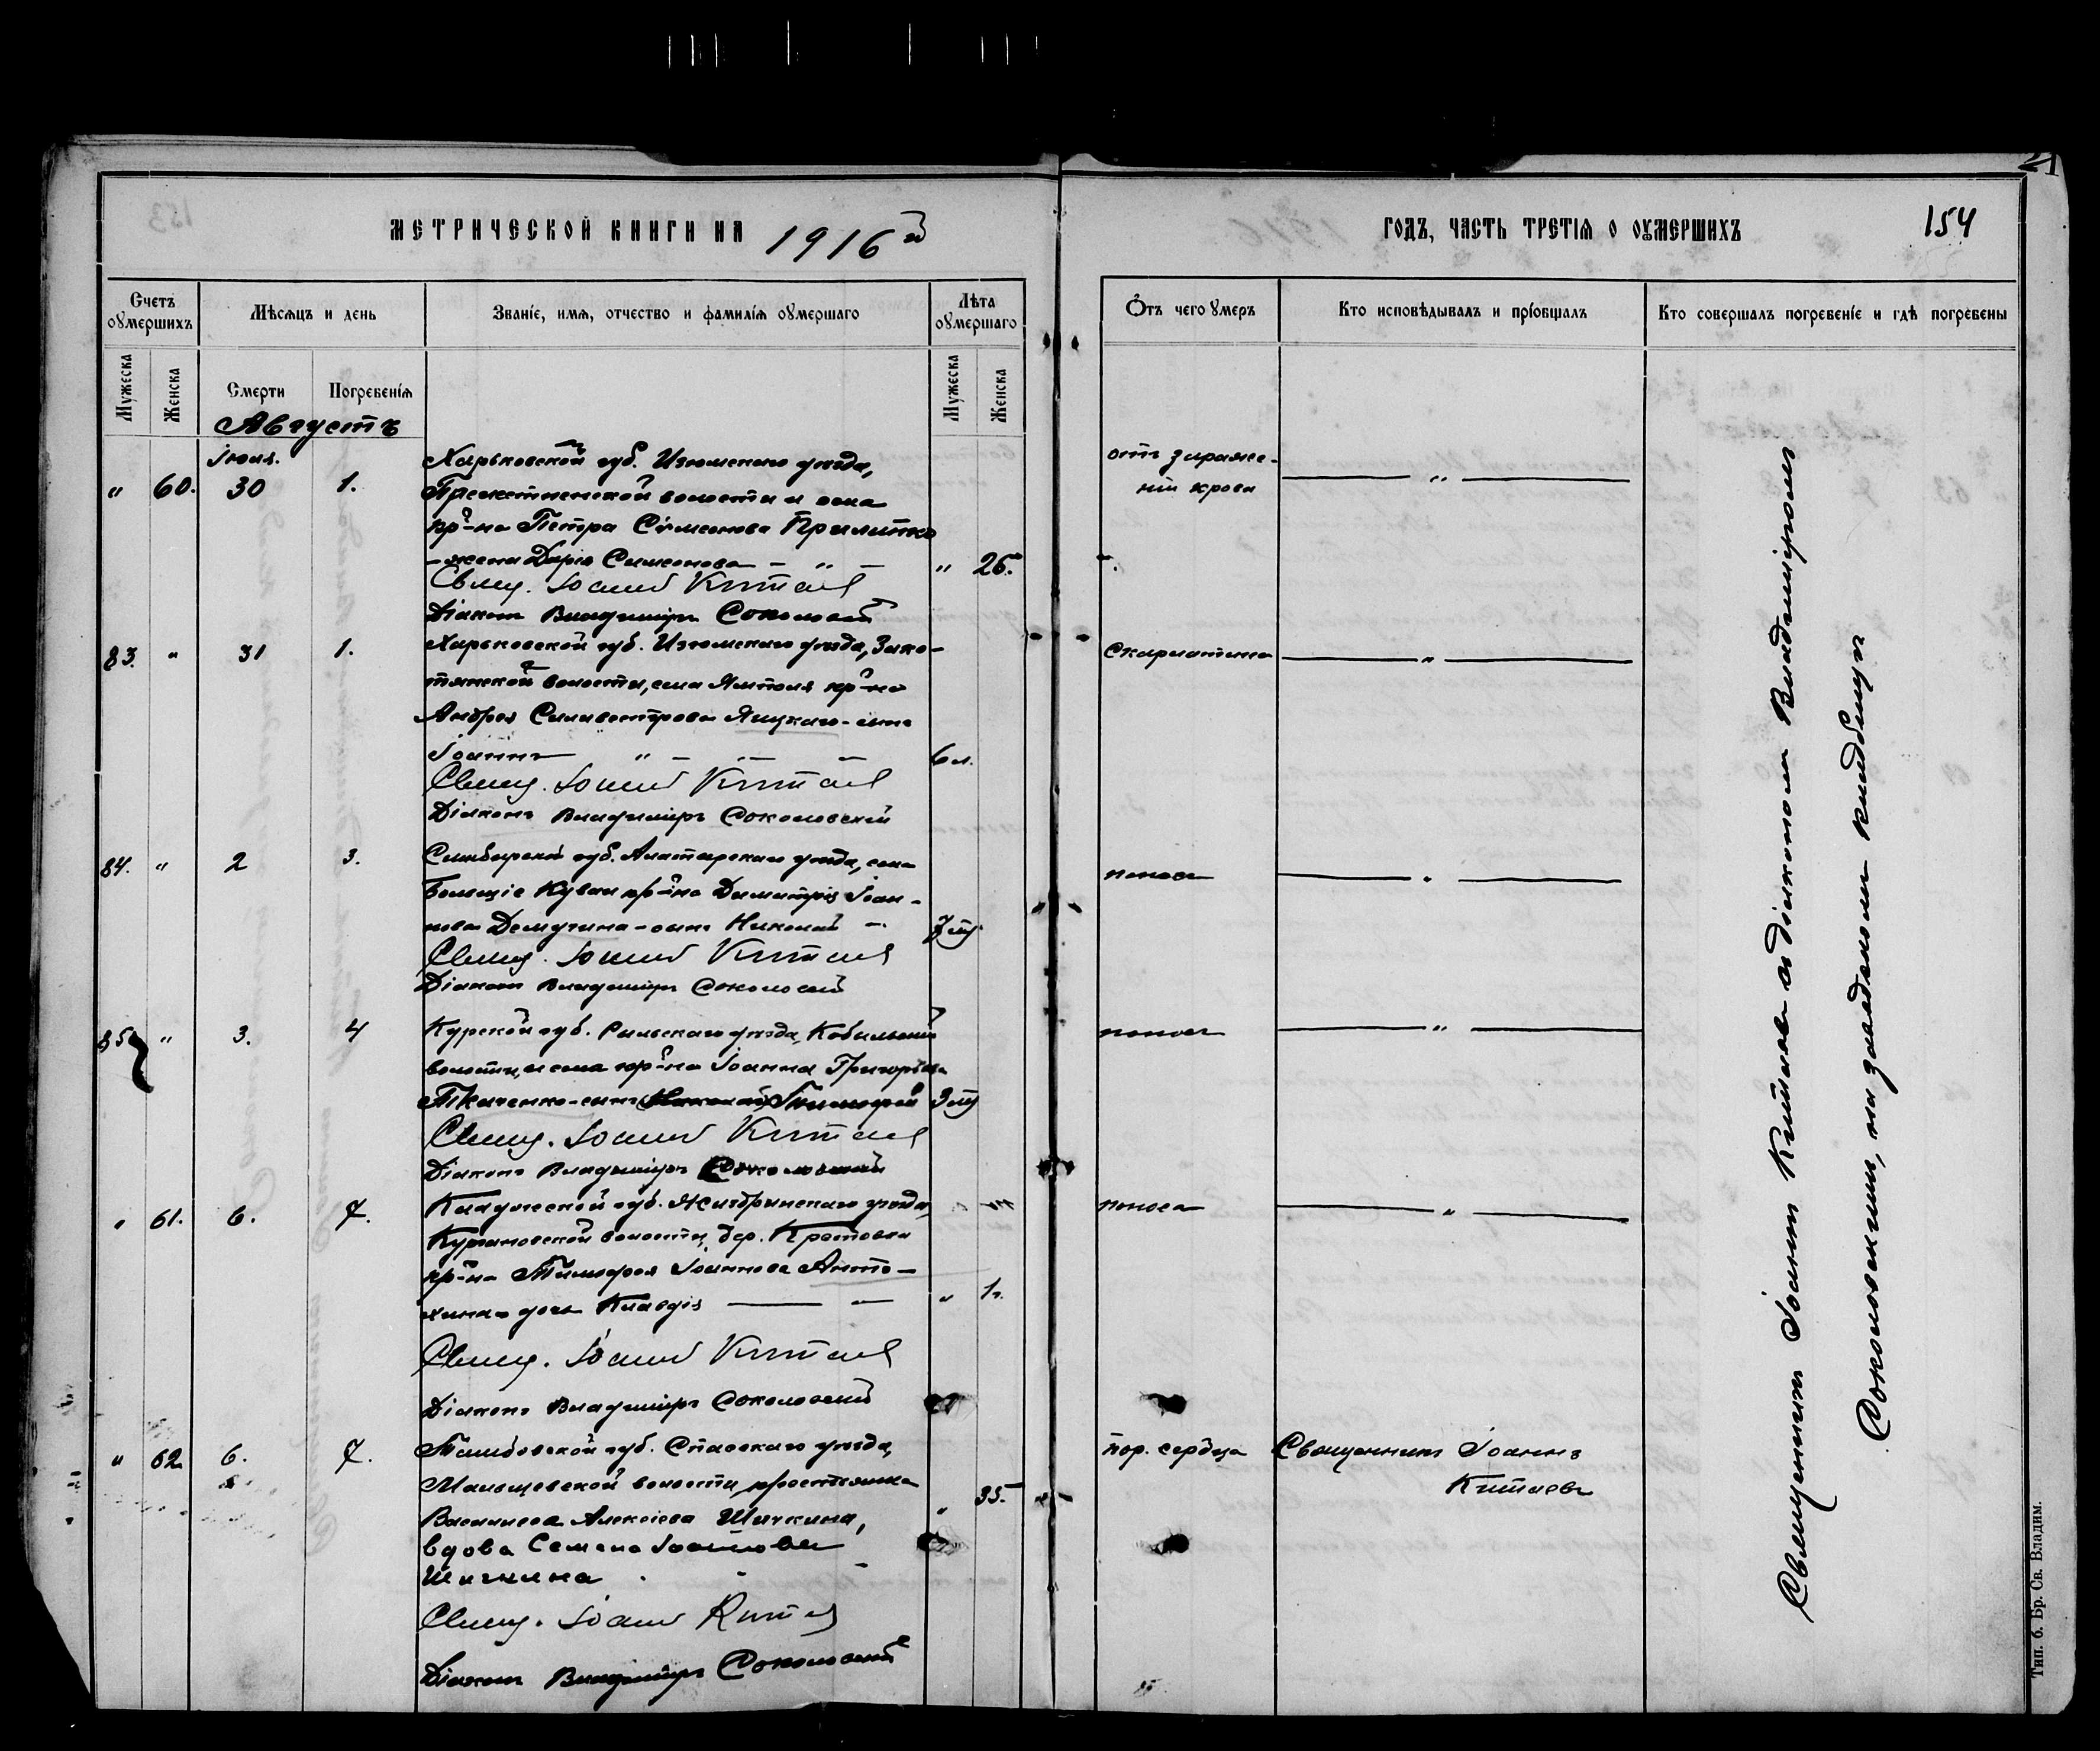 21
МЕТРИЧЕСКОЙ КНИГИ НА 1916й
ГОДЪ, ЧАСТЬ ТРЕТІѦ О ОУМЕРШИХЪ
154
Счетъ оумершихъ
Мѣсѧцъ и день
Званіе, имѧ, отчество и фамиліѧ оумершаго
Лѣта оумершаго
Отъ чего умеръ
Кто исповѣдывалъ и пріобщалъ
Кто совершалъ погребеніе и гдѣ погребены
Мужеска
Женска
Смерти
Погребеніѧ
Мужеска
Женска
Августъ
Іюля.
" 60. 30 1.
Харьковской губ. Изюмскаго уѣзда,
волости и села
кр-на Петра Симеонова Прилипко
- жена Дарія Симеонова - " -
" 25.
отъ зараже-
нія крови
"
Свящ. Іоаннъ Китаевъ
Діаконъ Владиміръ Соколовскій
83. " 31 1.
Харьковской губ. Изюмскаго уѣзда, Зако-
тянской волости, села Ямполя кр-на
Андрея Силивестрова Яцукаго - сынъ
Іоаннъ
6 л.
скарлатина
"
Свящ. Іоаннъ Китаевъ
Діаконъ Владиміръ Соколовскій
84. " 2 3.
Симбирской губ. Алатырскаго уѣзда, села
Большіе Кувай кр-на Димитрія Іоан-
нова Демугина - сынъ Николай -
7 мѣ
поноса
"
Свящ. Іоаннъ Китаевъ
Діаконъ Владиміръ Соколовскій
85 " 3. 4
Курской губ. Рыльскаго уѣзда, Кобыльской
волости, и села кр-на Іоанна Григорьева
Ткаченко - сынъ Тимофей
3 мѣ
поносъ
"
Свящ. Іоаннъ Китаевъ
Діаконъ Владиміръ Соколовскій
" 61. 6. 7.
Калужской губ. Жиздринскаго уѣзда,
волости, дер. Кротовки
кр-на Тимофея Іоаннова Анто-
хина - дочь Клавдія
" 1 г.
поноса
"
Свящ. Іоаннъ Китаевъ
Діаконъ Владиміръ Соколовскій
" 62 6. 7.
Тамбовской губ. Спасскаго уѣзда,
волости, крестьянка
Василиса Алексіева Шичкина,
вдова Семена Іоаннова
Шичкина
" 35.
пор. сердца
Священникъ Іоаннъ
Китаевъ
Свящ. Іоаннъ Китаевъ
Діаконъ Владиміръ Соколовскій
Священникъ Іоаннъ Китаевъ съ діакономъ Владиміромъ
Соколовскимъ, на заводскомъ кладбищѣ
Тип. б. Бр. Св. Владим.